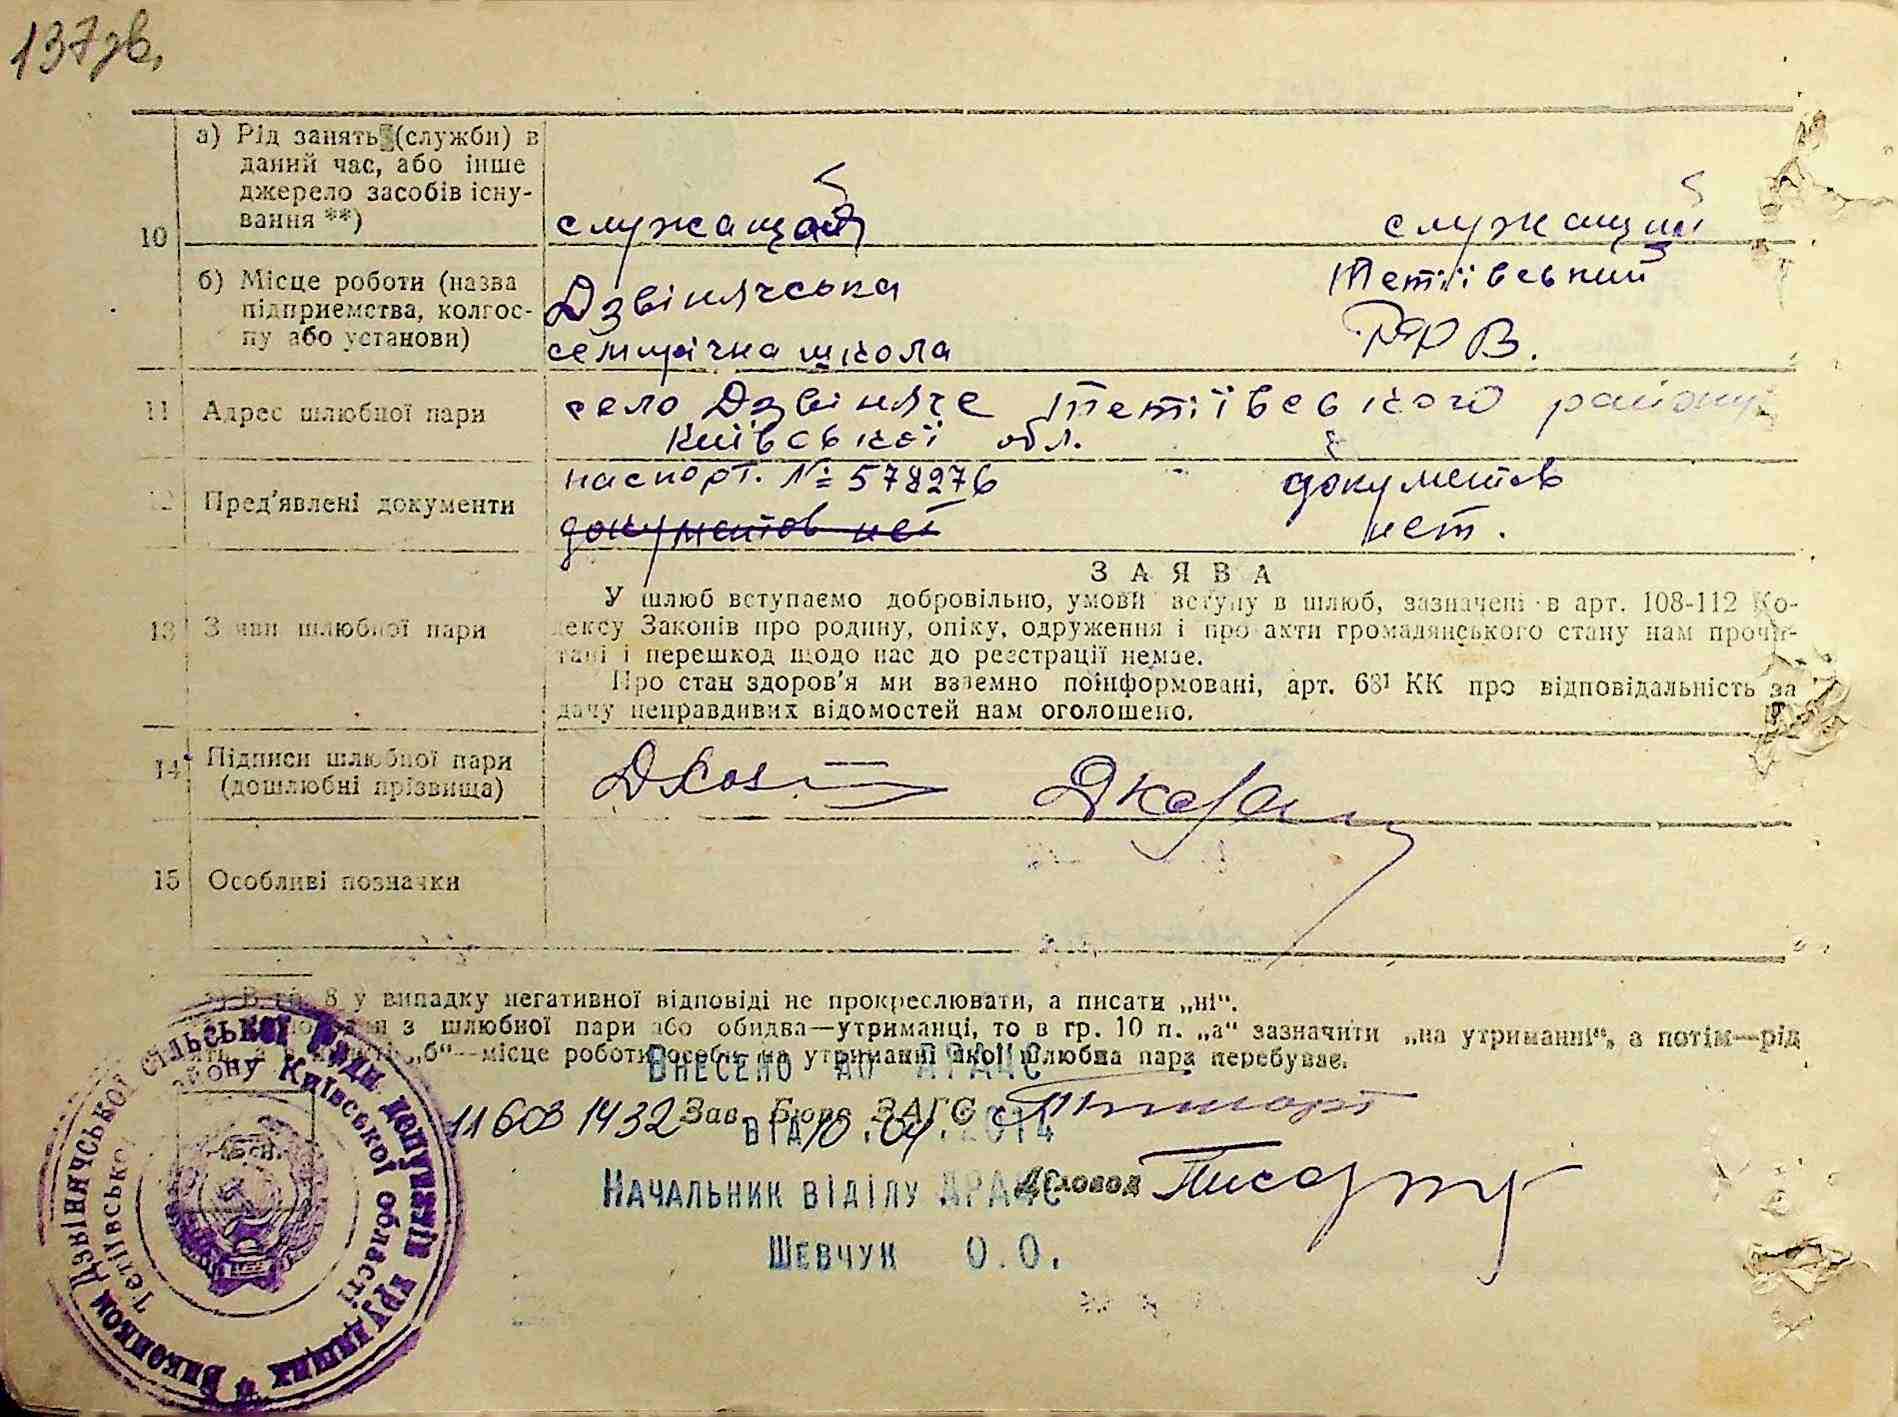 137зв.
10
а) Рід занять (служби) в
даний час, або інше
джерело засобів існу-
вання **)
служащая
служащий
б) Місце роботи (назва
підприемства, колгос-
пу або установи)
Дзвінячська
семирічна школа
Тетіївський
РФВ.
11
Адрес шлюбної пари
село Дзвіняче Тетіївського району
Київської обл.
12
Пред'явлені документи
паспорт. № 578276
документов нет
документов
нет.
13
Заяви шлюбної пари
ЗАЯВА
У шлюб вступаємо добровільно, умови вступу в шлюб, зазначені в арт. 108-112 Ко-
дексу Законів про родину, опіку, одруження і про акти громадянського стану нам прочи-
тані і перешкод щодо нас до реєстрації немає.
Про стан здоров'я ми взаємно поінформовані, арт. 68¹ КК про відповідальність за
дачу неправдивих відомостей нам оголошено.
14
Підписи шлюбної пари
(дошлюбні прізвища)
15
Особливі позначки
*) В гр. 8 у випадку негативної відповіді не прокреслювати, а писати „ні".
з шлюбної пари або обидва—утриманці, то в гр. 10 п. „а" зазначити „на утриманні", а потім—рід
„б"—місце роботи особи, на утриманні якої шлюбна пара перебуває.
Внесено до ДРАЦС
11603 1432 Зав. Бюро ЗАГС
від 10.04.2014
Начальник відділу ДРАЦС
Діловод
Шевчук О.О.
Виконком Дзвінячської сільської Ради депутатів трудящих
Тетіївського району Київської області
УРСР